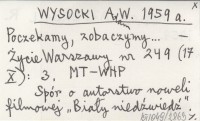 WYSOCKI A.W. 1959 a. x
Poczekamy, zobaczymy...
Życie Warszawy nr 249 (17
X): 3. MT-WHP
Spór o autorstwo noweli
filmowej „Biały niedźwiedź”.